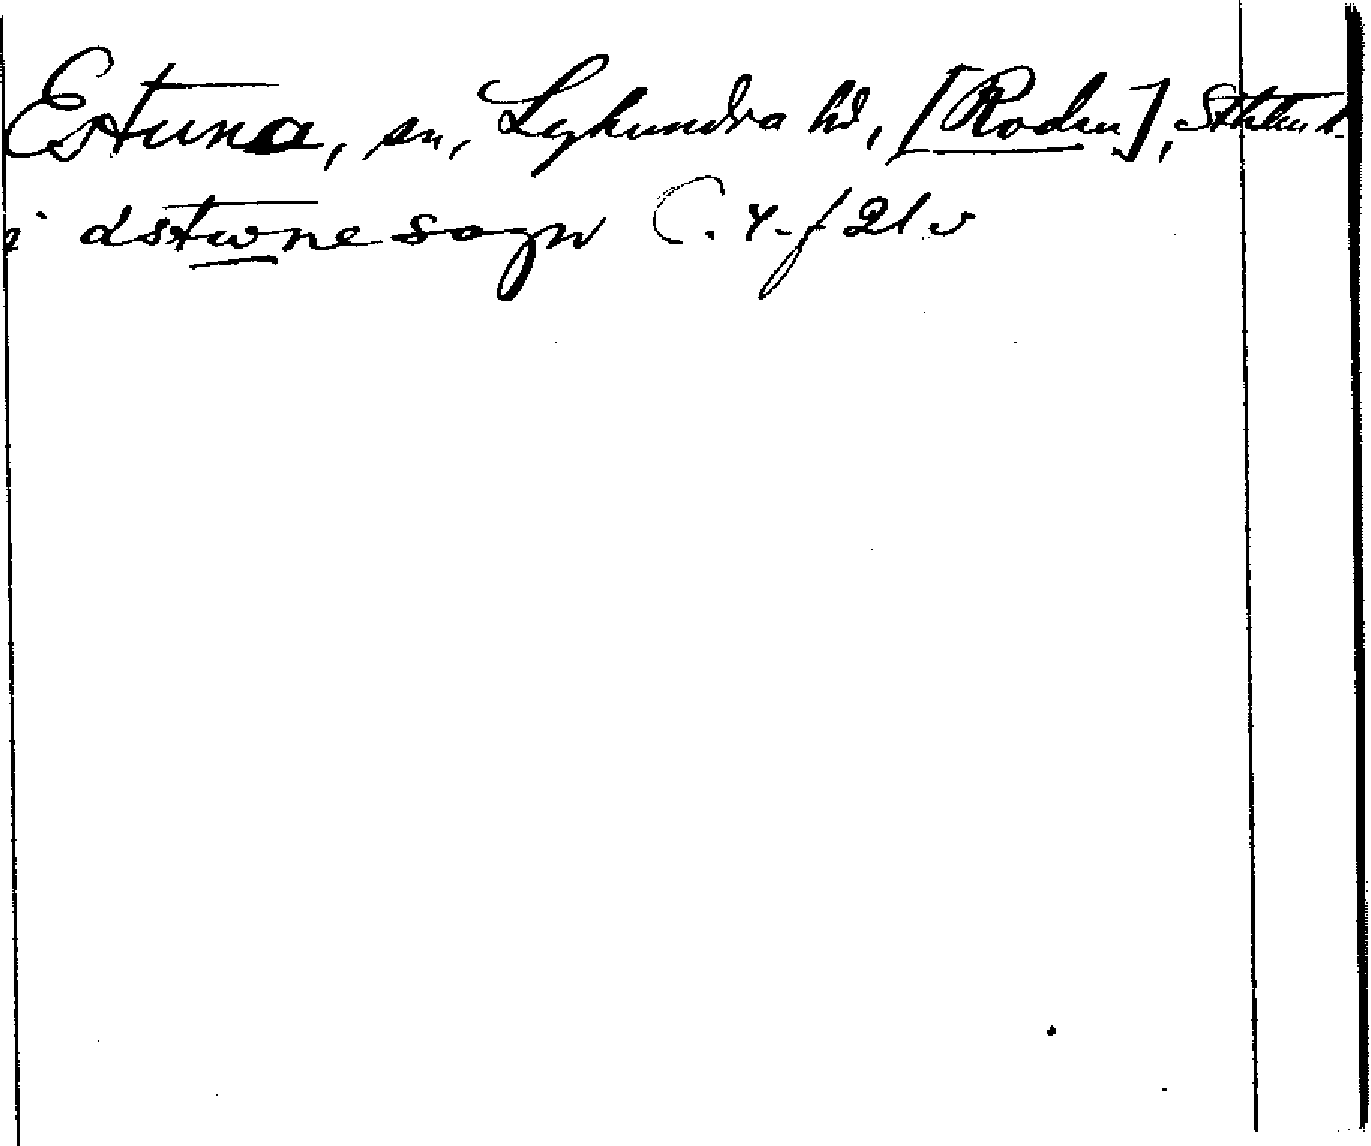 Estuna, sn, Lyhundra hd, [Roden], Sthlms l.
i østwne sogn C. 4. f 21 v